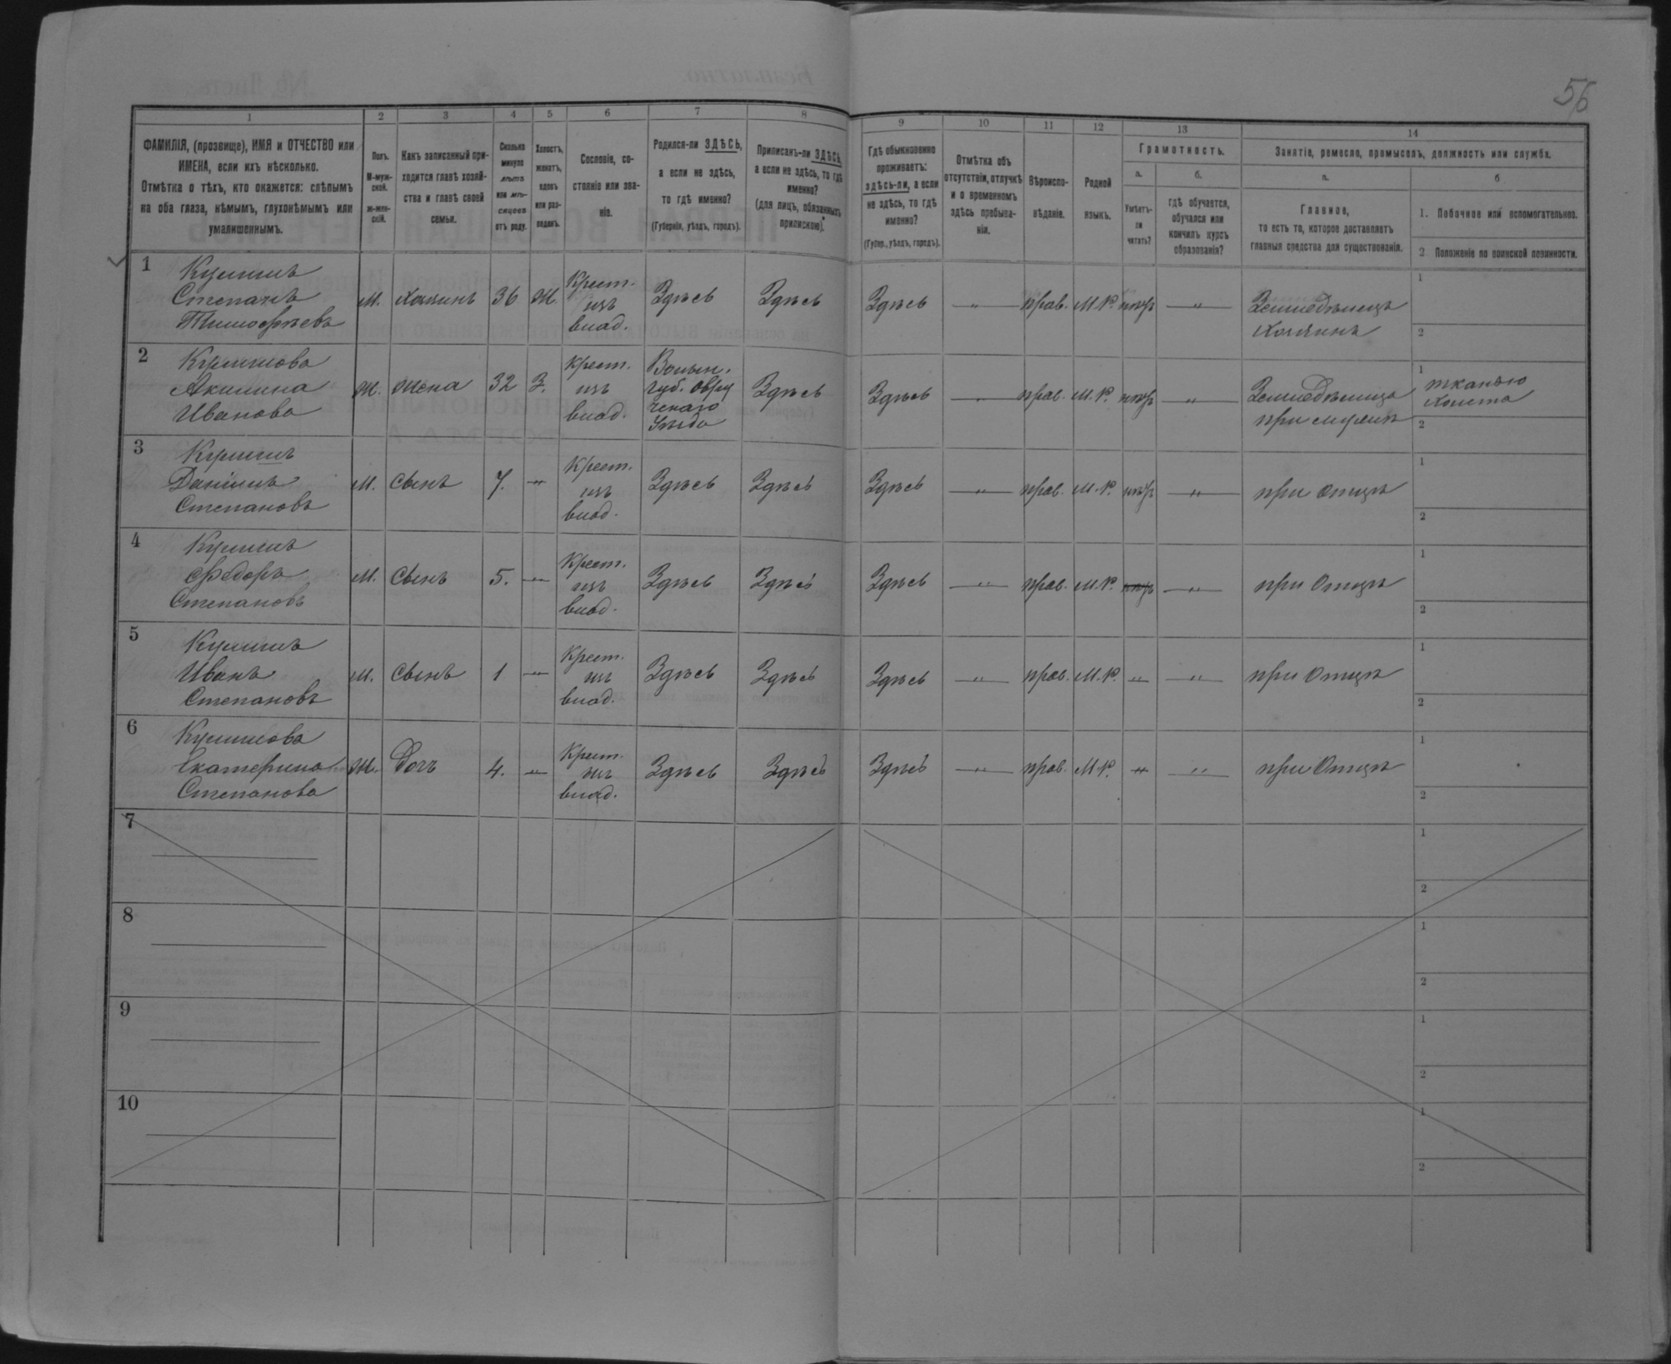 56
1 2 3 4 5 6 7 8 9 10 11 12 13 14
ФАМИЛІЯ, (прозвище), ИМЯ и ОТЧЕСТВО или
ИМЕНА, если ихъ нѣсколько.
Отмѣтка о тѣхъ, кто окажется: слѣпымъ
на оба глаза, нѣмымъ, глухонѣмымъ или
умалишеннымъ.
Полъ.
М-муж-
ской.
ж-жен-
скій.
Какъ записанный при-
ходится главѣ хозяй-
ства и главѣ своей
семьи.
Сколько
минуло
лѣтъ
или мѣ-
сяцевъ
отъ роду.
Холостъ,
женатъ,
вдовъ
или раз-
веденъ.
Сословіе, со-
стояніе или зва-
ніе.
Родился-ли ЗДѢСЬ,
а если не здѣсь,
то гдѣ именно?
(Губернія, уѣздъ, городъ).
Приписанъ-ли ЗДѢСЬ,
а если не здѣсь, то гдѣ
именно?
(для лицъ, обязанныхъ
припискою).
Гдѣ обыкновенно
проживаетъ:
здѣсь-ли, а если
не здѣсь, то гдѣ
именно?
(Губер., уѣздъ, городъ).
Отмѣтка объ
отсутствіи, отлучкѣ
и о временномъ
здѣсь пребыва-
ніи.
Вѣроиспо-
вѣданіе.
Родной
языкъ.
Грамотность.
а.
Умѣетъ-
ли
читать?
б.
гдѣ обучается,
обучался или
кончилъ курсъ
образованія?
Занятіе, ремесло, промыселъ, должность или служба.
а.
Главное,
то есть то, которое доставляетъ
главныя средства для существованія.
б
1. Побочное или вспомогательное.
2 Положеніе по воинской повинности.
1
Степанъ
Тимофѣевъ
м. хозяинъ 36 ж. Крест. изъ влад. Здѣсь Здѣсь Здѣсь " прав. М.Р. нтр " Земледѣлецъ
Хозяинъ
1
2
2
Акилина
Иванова
ж. жена 32 З. Крест. изъ влад. Волын. губ. Овручскаго Уѣзда Здѣсь Здѣсь " прав. М.Р. " Земледѣлица
при мужѣ
1 тканью
холста
2
3
Даніилъ
Степановъ
м. сынъ 7. " Крест. изъ влад. Здѣсь Здѣсь Здѣсь " прав. М.Р. " при Отцѣ
1
2
4
Ѳедоръ
Степановъ
м. Сынъ 5. " Крест. изъ влад. Здѣсь Здѣсь Здѣсь " прав. М.Р. " при Отцѣ
1
2
5
Иванъ
Степановъ
м. Сынъ 1 " Крест. изъ влад. Здѣсь Здѣсь Здѣсь " прав. М.Р. " " при Отцѣ
1
2
6
Екатерина
Степанова
ж. Дочь 4. " Крест. изъ влад. Здѣсь Здѣсь Здѣсь " прав. М.Р. " " при Отцѣ
1
2
7
1
2
8
1
2
9
1
2
10
1
2